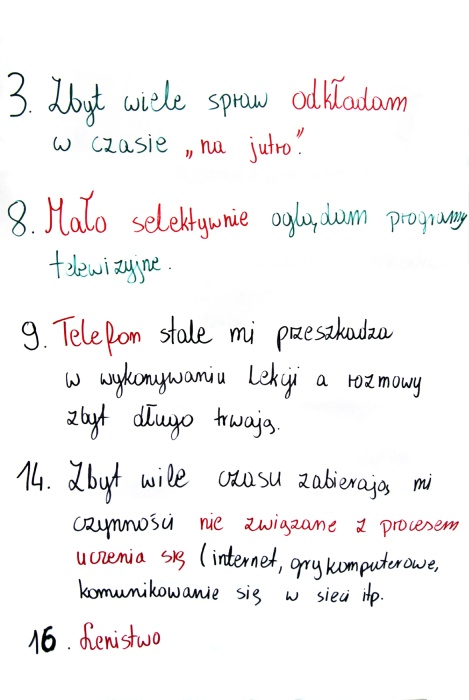 3. Zbyt wiele spraw odkładam
w czasie „na jutro".
8. Mało selektywnie oglądam programy
telewizyjne.
9. Telefon stale mi przeszkadza
w wykonywaniu Lekcji a rozmowy
zbyt długo trwają.
14. Zbyt wile czasu zabierają mi
czynności nie związane z procesem
uczenia się (internet, gry komputerowe,
komunikowanie się w sieci itp.
16. Lenistwo